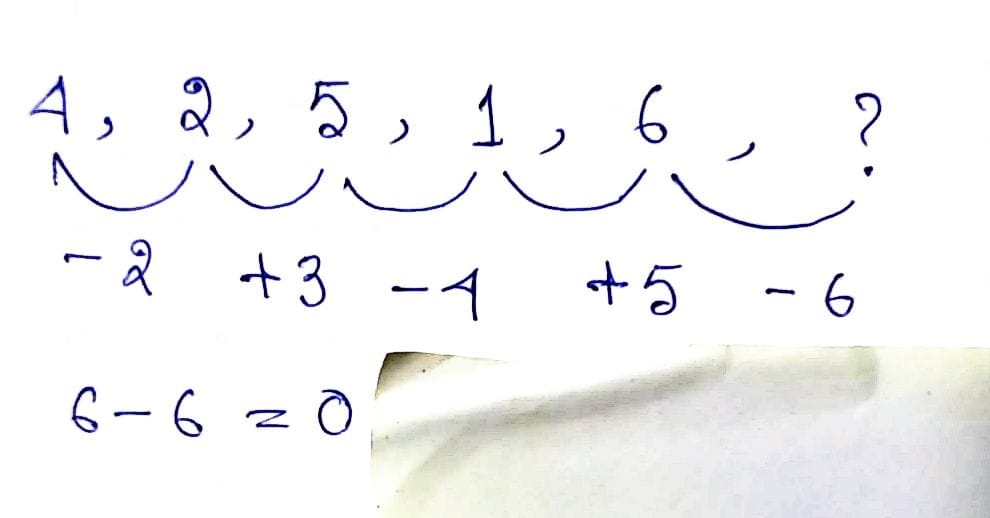 4, 2, 5, 1, 6, ?
-2 +3 -4 +5 -6
6-6 = 0